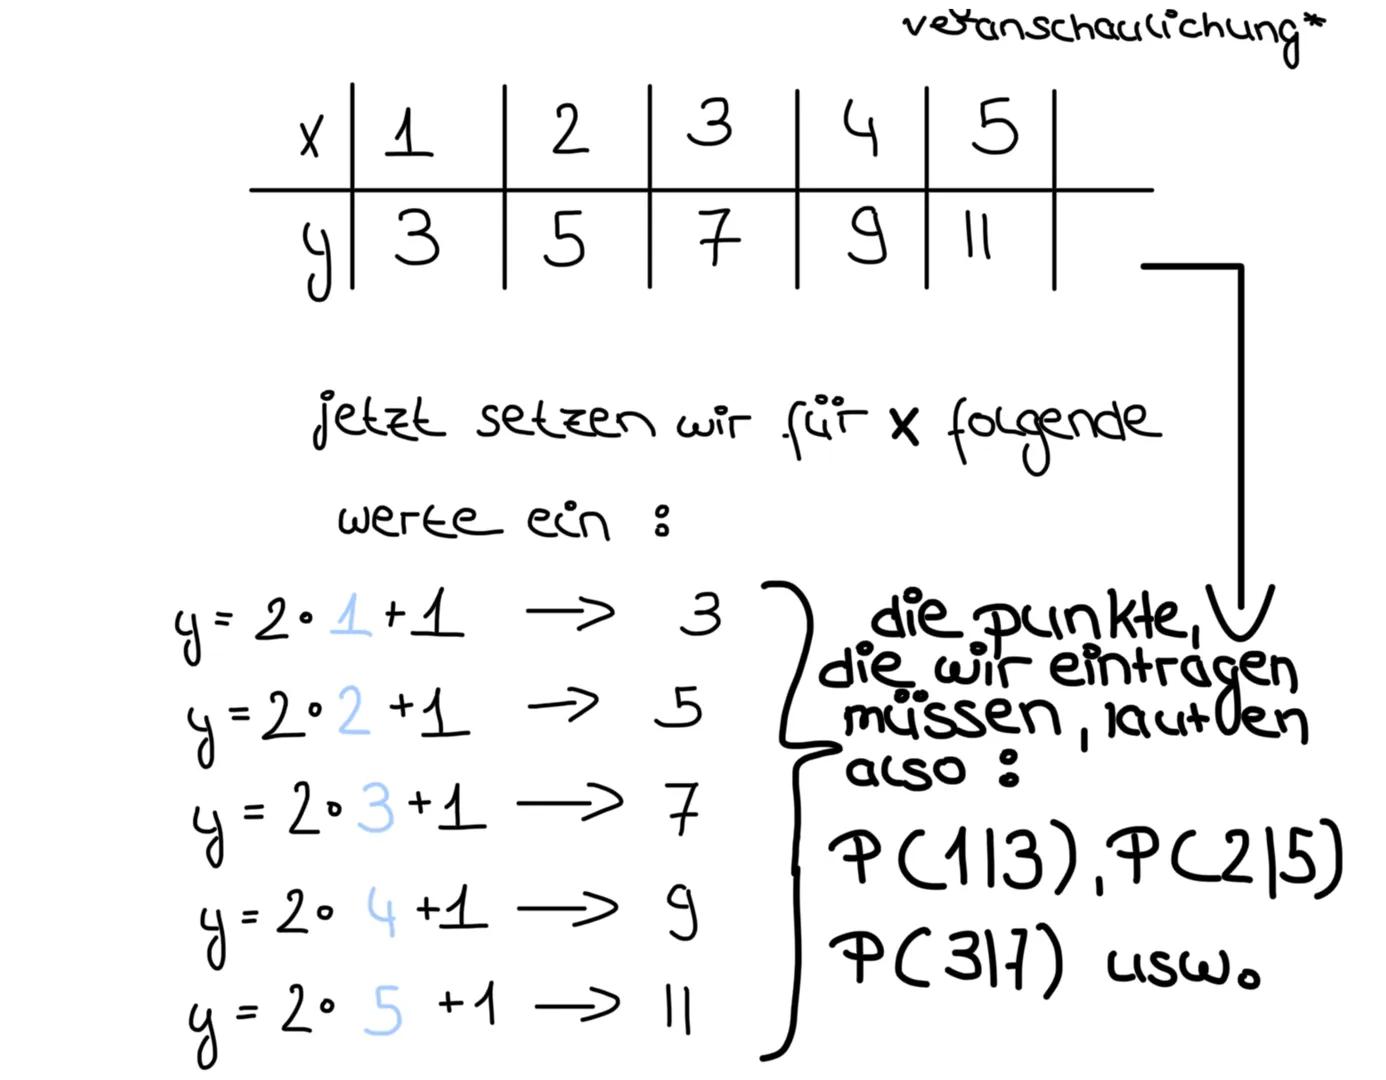 veranschaulichung*
x | 1 | 2 | 3 | 4 | 5 |
y | 3 | 5 | 7 | 9 | 11 |
jetzt setzen wir für x folgende
werte ein :
y = 2 · 1 + 1 → 3
y = 2 · 2 + 1 → 5
y = 2 · 3 + 1 → 7
y = 2 · 4 + 1 → 9
y = 2 · 5 + 1 → 11
die punkte,
die wir eintragen
müssen, lauten
also :
P(1|3), P(2|5)
P(3|7) usw.